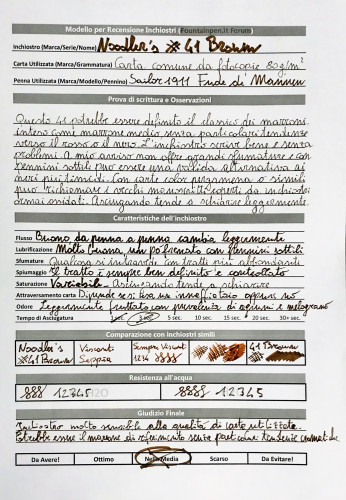 Modello per Recensione Inchiostri (Fountainpen.it Forum)
Inchiostro (Marca/Serie/Nome) Noodler's #41 Brown
Carta Utilizzata (Marca/Grammatura) Carta comune da fotocopie 80g/m²
Penna Utilizzata (Marca/Modello/Pennino) Sailor 1911 Fude di Mannen
Prova di scrittura e Osservazioni
Questo 41 potrebbe essere definito il classico dei marroni,
inteso come marrone medio, senza particolari tendenze
verso il rosso o il nero. L'inchiostro scrive bene e senza
problemi. A mio avviso non offre grandi sfumature e con
pennini sottili può essere una valida alternativa ai
neri più timidi. Con carte color pergamena o simili
può richiamare i vecchi manoscritti coperti da inchiostri
ormai ossidati. Asciugando tende a schiarire leggermente.
Caratteristiche dell'inchiostro
Flusso Buono da penna a penna cambia leggermente
Lubrificazione Molto buona, un po' frenato con pennini sottili
Sfumature Qualcosa si intravede con tratti più abbondanti
Spiumaggio Il tratto è sempre ben definito e controllato
Saturazione Variabile - Asciugando tende a schiarire
Attraversamento carta Dipende se si usa un innaffiatoio oppure no
Odore Leggermente fruttato con prevalenza di agrumi e melograno
Tempo di Asciugatura 1 sec. 3 sec. 5 sec. 10 sec. 15 sec. 20 sec. 30+ sec.
Comparazione con Inchiostri simili
Noodler's #41 Brown
Visconti Seppia
Sempre Visconti 1234
#41 Brown
Resistenza all'acqua
12345 H2O
12345
Giudizio Finale
Inchiostro molto sensibile alla qualità di carta utilizzata.
Potrebbe essere il marrone di riferimento senza particolari tendenze cromatiche
Da Avere! Ottimo Nella Media Scarso Da Evitare!